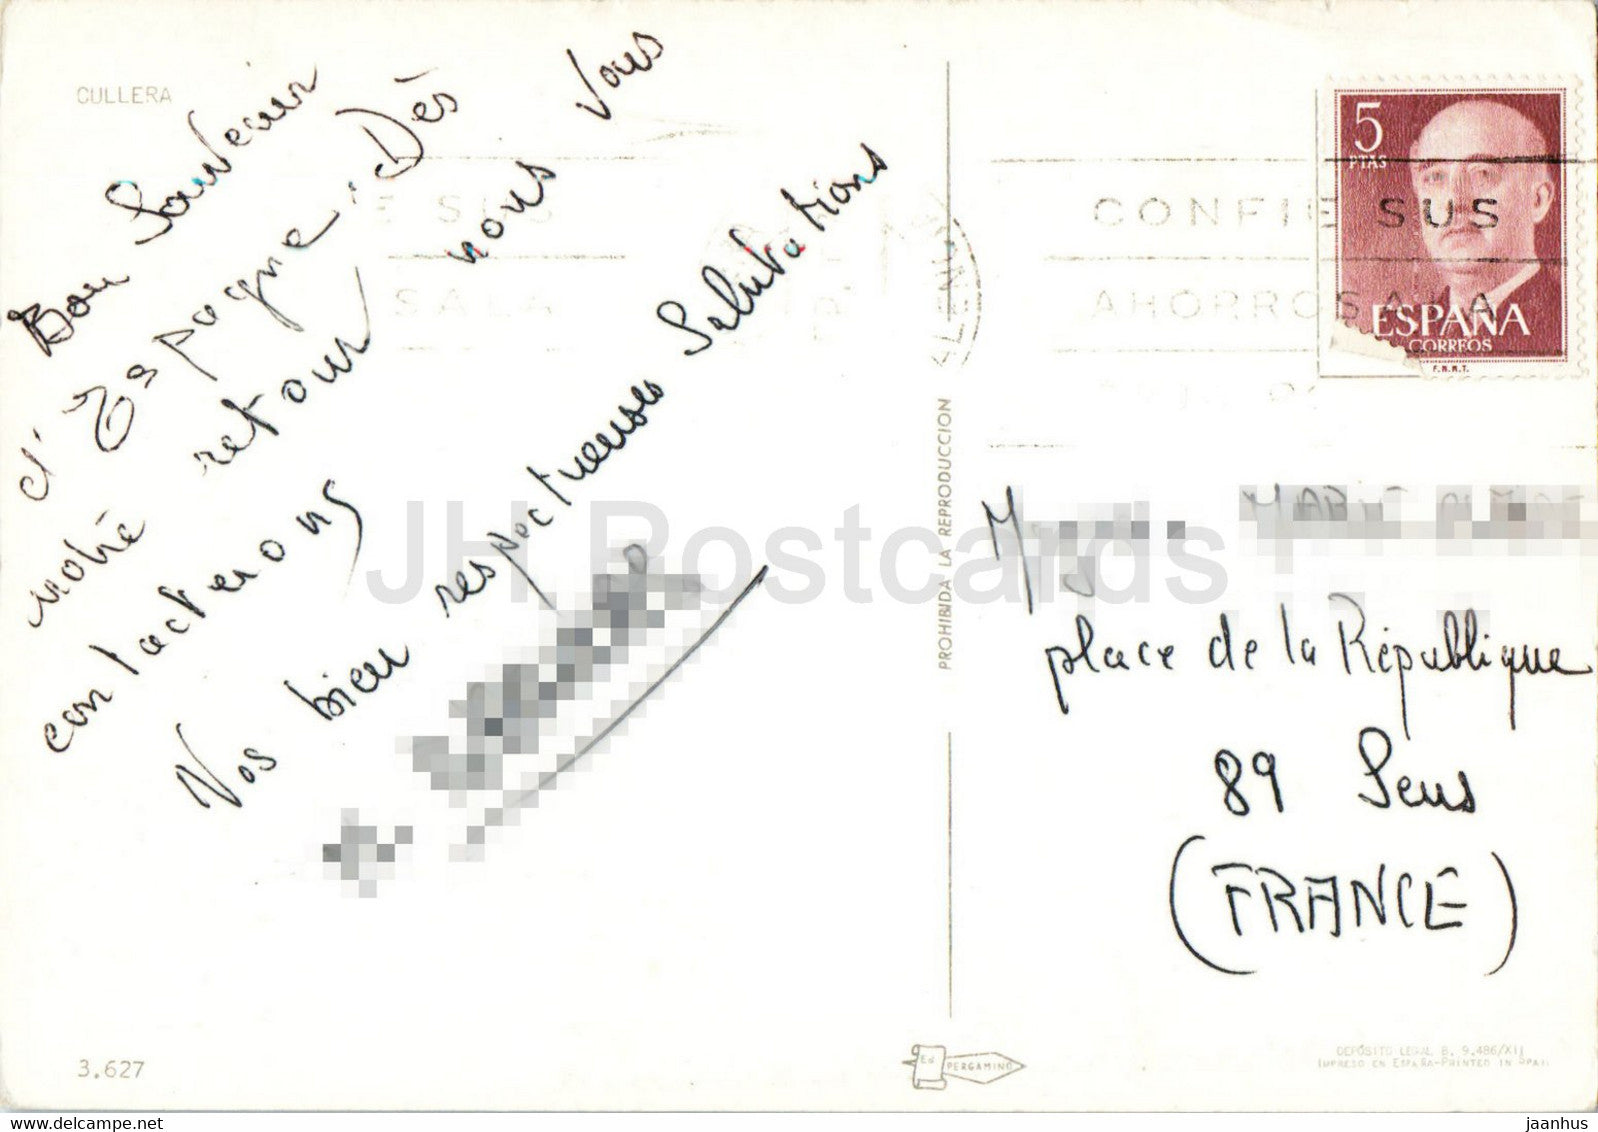 CULLERA
Bon Souvenir
d'Espagne. Dès
notre retour nous vous
contacterons
Nos bien respectueuses Salutations
3.627
PROHIBIDA LA REPRODUCCION
Ed. PERGAMINO
5
PTAS
ESPAÑA
CORREOS
F.N.M.T.
CONFIE SUS
AHORROS A LA
E SUS
S A LA
place de la République
89 Sens
(FRANCE)
DEPÓSITO LEGAL B. 9.486/XII
IMPRESO EN ESPAÑA-PRINTED IN SPAIN
JH Postcards
www.delcampe.net
jaanhus